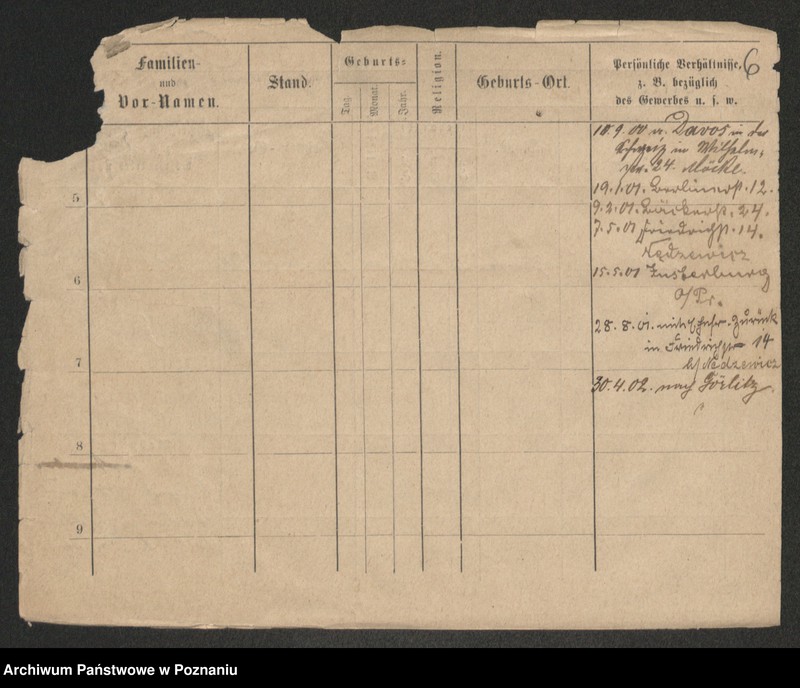 Familien-
und
Vor-Namen.
Stand.
Geburts-
Tag.
Monat.
Jahr.
Religion.
Geburts-Ort.
Persönliche Verhältnisse,
z. B. bezüglich
des Gewerbes u. s. w.
6
10.9.00 n. Davos in der
Schweiz in Wilhelm-
24
19.1.01. Berlinerst. 12.
9.2.01. Bäckerst. 24.
7.5.01 Friedrichst. 14.
Nędzewicz
15.5.01 Insterburg
O/Pr.
28.8.01. zurück
in Friedrichstr 14
b/Nędzewicz
30.4.02. nach Görlitz
5
6
7
8
9
Archiwum Państwowe w Poznaniu